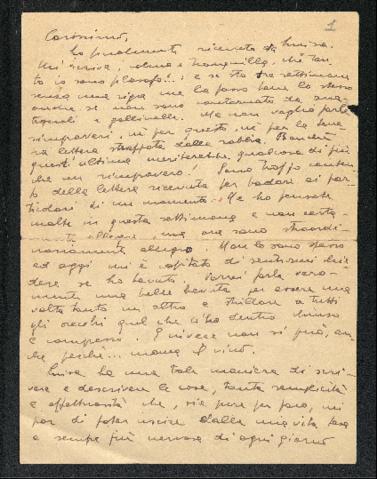 1
Carissimo,
Ho finalmente ricevuto da Luisa.
Mi scriva, calma e tranquilla, che tan
to io sono filosofo!... e se sto tre settimane
senza una riga me la passo bene lo stesso
anche se non sono
e Ma non voglio farle
rimproveri, né per questo, né per la Sua
lettera strappata dalla rabbia. Benché
quest'ultima meriterebbe qualcosa di più
che un rimprovero. Sono troppo conten
to della lettera ricevuta per badare ai par
ticolari di un momento. Ce ho pensate
molte in questa settimana e non certa
mente allegre, ma ora sono straordi
nariamente allegro. Non lo sono spesso
ed oggi mi è capitato di sentirmi chie
dere se ho bevuto. Vorrei farla vera
mente una bella bevuta per essere una
volta tanto un altro e stridare a tutti
gli orecchi quel che c'ho dentro chiuso
e compresso. E invece non si può, an
che perché... manca il vino.
Luisa ha una tale maniera di scri
vere e descrivere le cose, tanta semplicità
e affettuosità che, sia pure per poco, mi
par di poter uscire dalla mia vita
e sempre più nervosa di ogni giorno